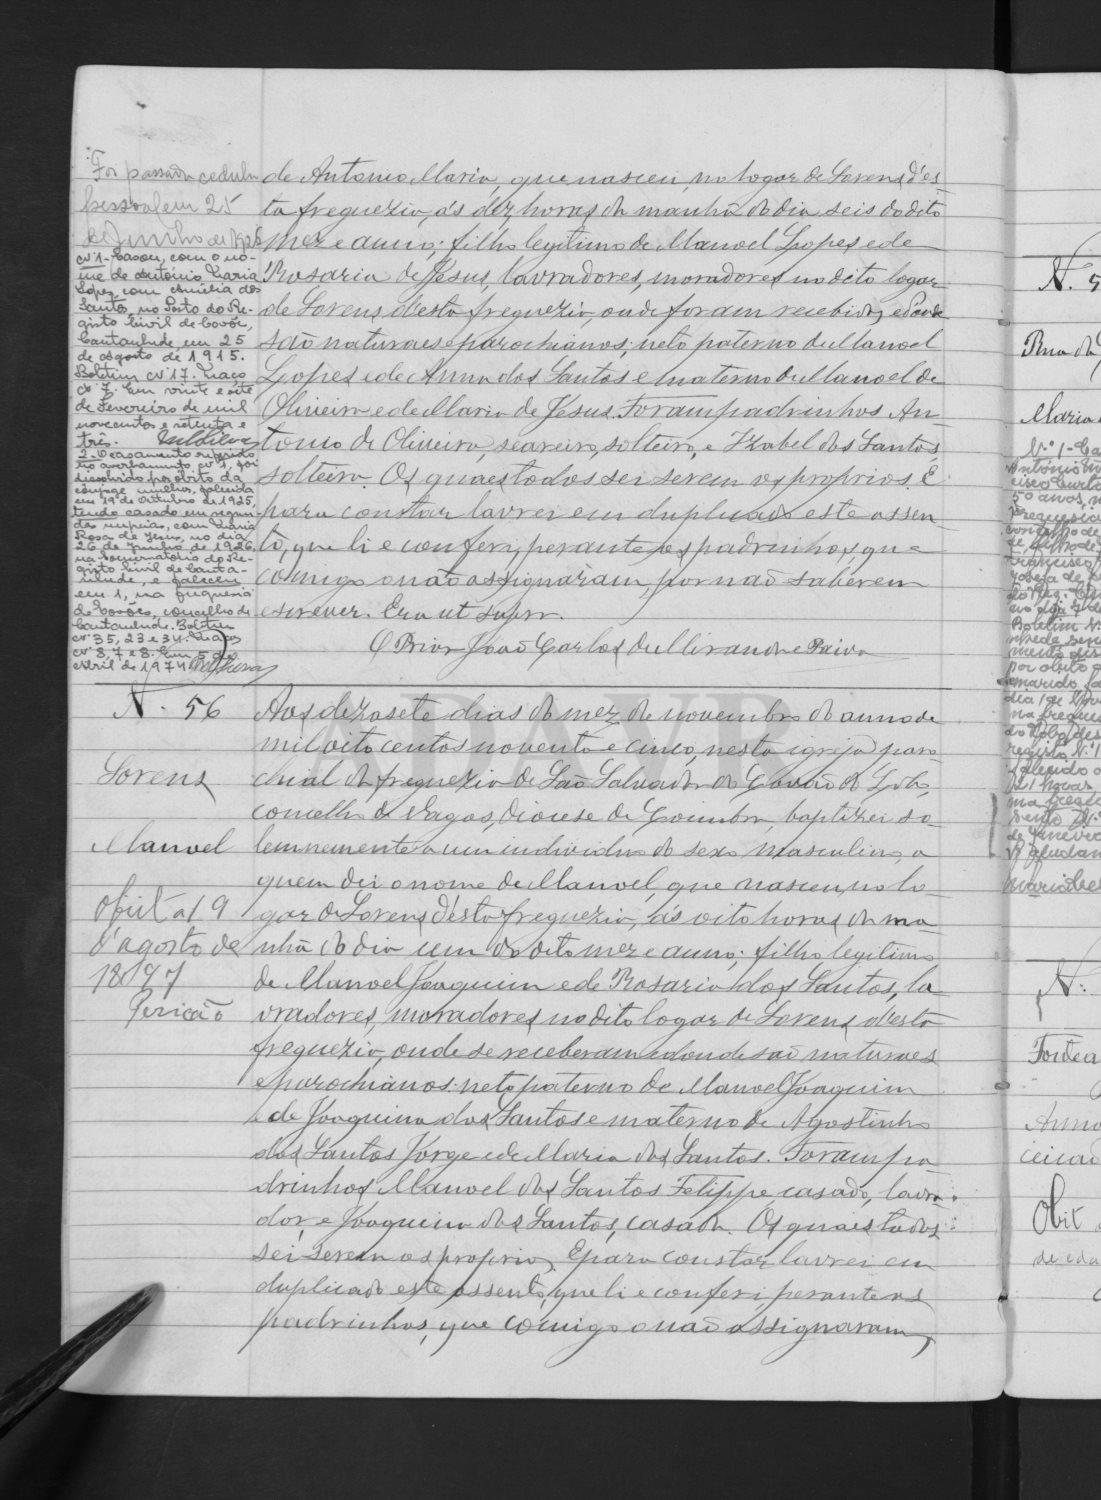 Foi passada cedula
pessoal em 25
de Junho de 1926
Nº 1 - Casou, com o no-
me de António Maria
Lopes, com Amélia dos
Santos, no Posto do Re-
gisto Civil de Covões,
Cantanhede em 25
de Agosto de 1915.
Boletim Nº 17. Maço
Nº 7. Em vinte e sete
de Fevereiro de mil
novecentos e setenta e
três.
2 - O casamento referido
no averbamento Nº 1, foi
dissolvido por óbito da
cônjuge mulher, falecida
em 19 de Outubro de 1925,
tendo casado em segun-
das nupcias, com Maria
Rosa de Jesus, no dia
26 de Junho de 1926,
na Conservatória do Re-
gisto Civil de Canta-
nhede, e faleceu
em 1, na freguesia
de Covões, concelho de
Cantanhede. Boletins
Nº 35, 23 e 34. Maços
Nº 8, 7 e 8. Em 5 de
Abril de 1974
de Antonio Maria, que nasceu, no logar de Lorens, d'es-
ta freguezia, ás dez horas da manhã do dia seis do dito
mez e anno; filho legitimo de Manoel Lopes e de
Rosaria de Jesus, lavradores, moradores no dito logar
de Lorens d'esta freguezia, onde foram recebidos, e d'onde
são naturaes e parochianos; neto paterno de Manoel
Lopes e de Anna dos Santos e materno de Manoel de
Oliveira e de Maria de Jesus. Foram padrinhos An-
tonio de Oliveira, seareiro, solteiro, e Izabel dos Santos,
solteira. Os quaes todos sei serem os proprios. E
para constar lavrei em duplicado este assen-
to, que li e conferi, perante os padrinhos, que
comigo o não assignaram, por não saberem
escrever. Era ut supra.
O Prior João Carlos de Miranda e Paiva
N. 56
Lorens
Manoel
Obiit a 19
d'agosto de
1897
Pericão
Aos dezasete dias do mez de novembro do anno de
mil oito centos noventa e cinco, nesta igreja paro-
chial da freguezia de São Salvador do Covão do Lobo,
concelho de Vagos, diocese de Coimbra, baptizei so-
lemnemente a um individuo do sexo masculino, a
quem dei o nome de Manoel, que nasceu, no lo-
gar de Lorens, d'esta freguezia, ás oito horas da ma-
nhã do dia um do dito mez e anno; filho legitimo
de Manoel Joaquim e de Rosaria dos Santos, la-
vradores, moradores no dito logar de Lorens, d'esta
freguezia, onde se receberam e d'onde são naturaes
e parochianos: neto paterno de Manoel Joaquim
e de Joaquina dos Santos e materno de Agostinho
dos Santos Jorge e de Maria dos Santos. Foram pa-
drinhos Manoel dos Santos Felippe, casado, lavra-
dor, e Joaquina dos Santos, casada. Os quaes todos
sei serem os proprios. E para constar lavrei em
duplicado este assento, que li e conferi, perante os
padrinhos, que comigo o não assignaram,
N. 5
Rua da
Maria
Nº 1 - Ca
N.
Fonte
Anna
Obit
de eda
ADAVR